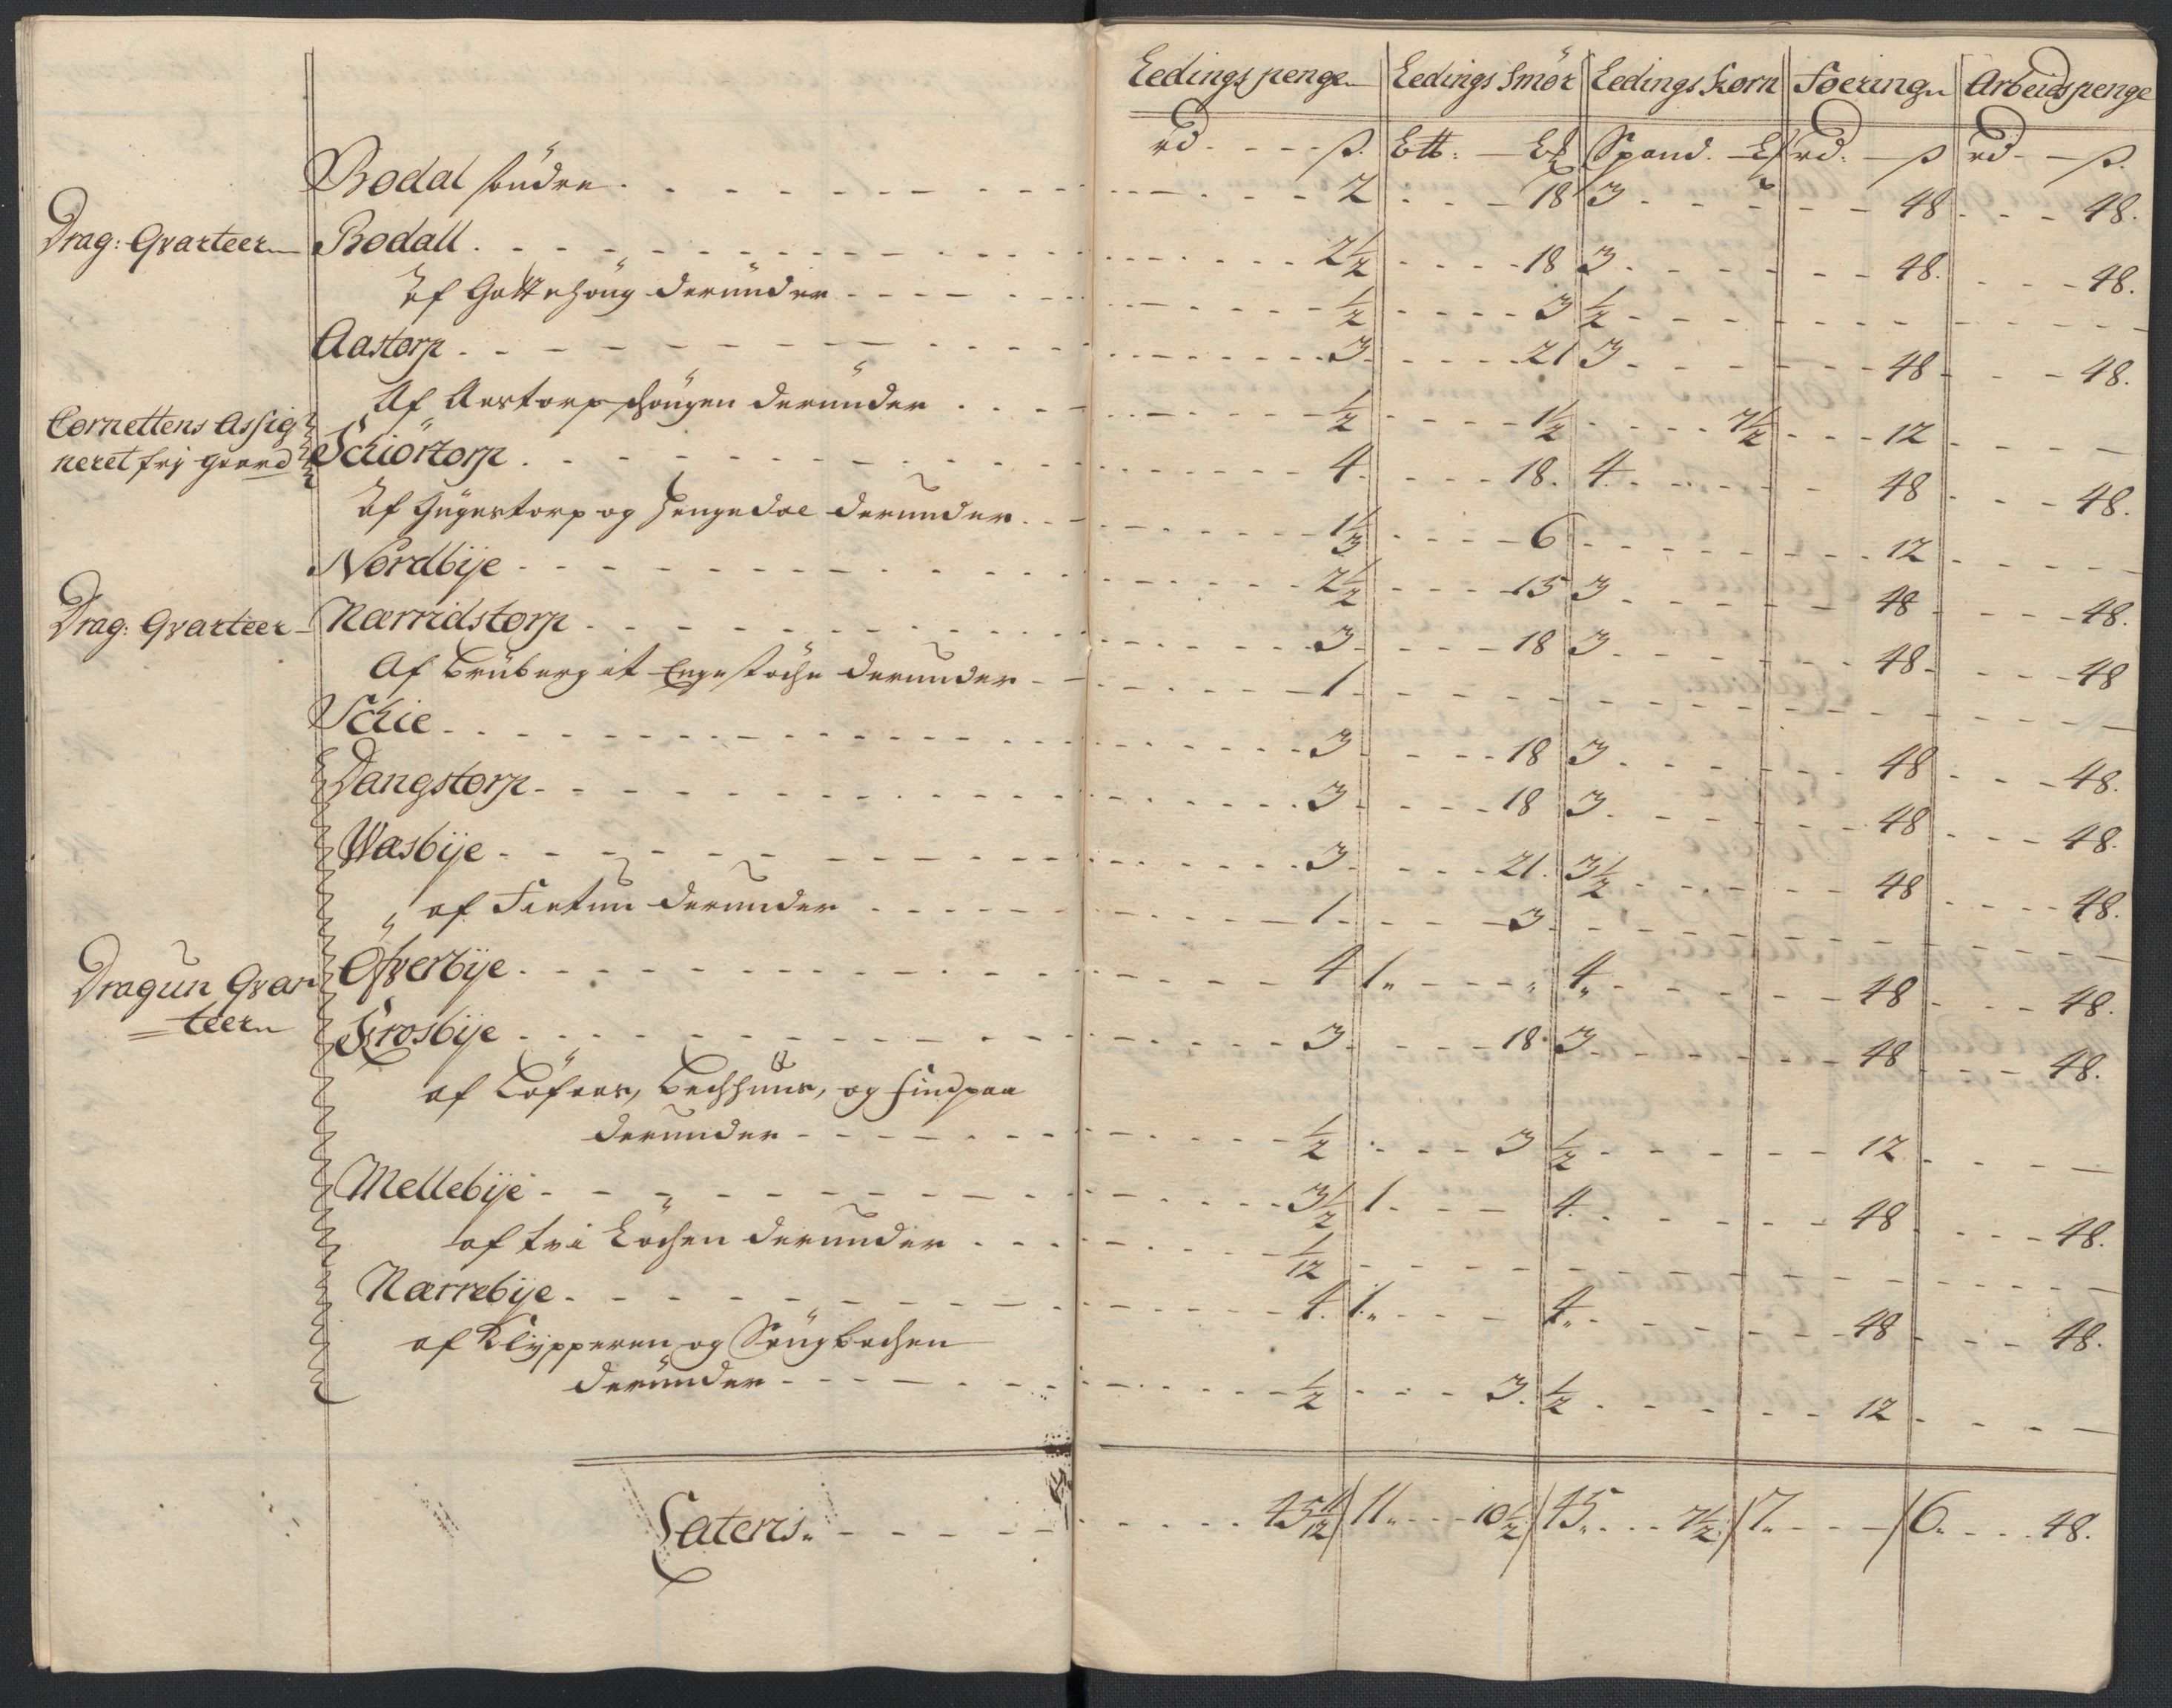 Leedings penge Leedings Smör Leedings Korn Foering Arbeids penge
rd ß. Ltt: Lß Spand. rd: ß rd ß.
Rodal söndre 2 18 3 48 48.
Drag: Qvarteer Rodall 2½ 18 3 48. 48.
Af deründer ½ 3 ½
Aastorp 3 21 3 48 48.
Af Aastorp deründer ½ 1½ 7½ 12
Cornettens Assig
neret frj gaard Schiörtorp 4 18. 4 48 48.
Af og derunder 1/3 6 12
Nordbije 2½ 15 3 48 48.
Drag: Qvarteer Nærridstorp 3 18 3 48 48
Af it derunder 1
Schie 3 18 3 48 48.
Dangstorp 3 18 3 48 48.
Wasbije 3 21. 3½ 48 48.
af derunder 1 3
Dragun Qvar
teer Öfverbije 4 1 4 48 48.
Krosbije 3 18 3 48 48.
af og
derunder ½ 3 ½ 12
Mellebije 3½ 1 4 48 48.
af derunder 1/12
Nærrebije 4. 1 4 48 48.
af Klypperen og
deründer ½ 3. ½ 12
Lateris 45 11/12 11 10½ 45 7½ 7 6 48.